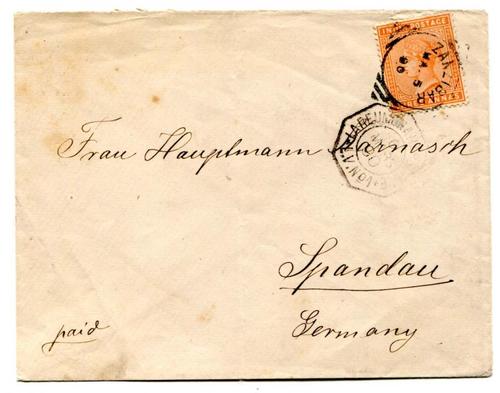 INDIA POSTAGE
ZANZIBAR
MA 5
90
LA REUNION
Frau Hauptmann Harnasch
Spandau
Germany
paid